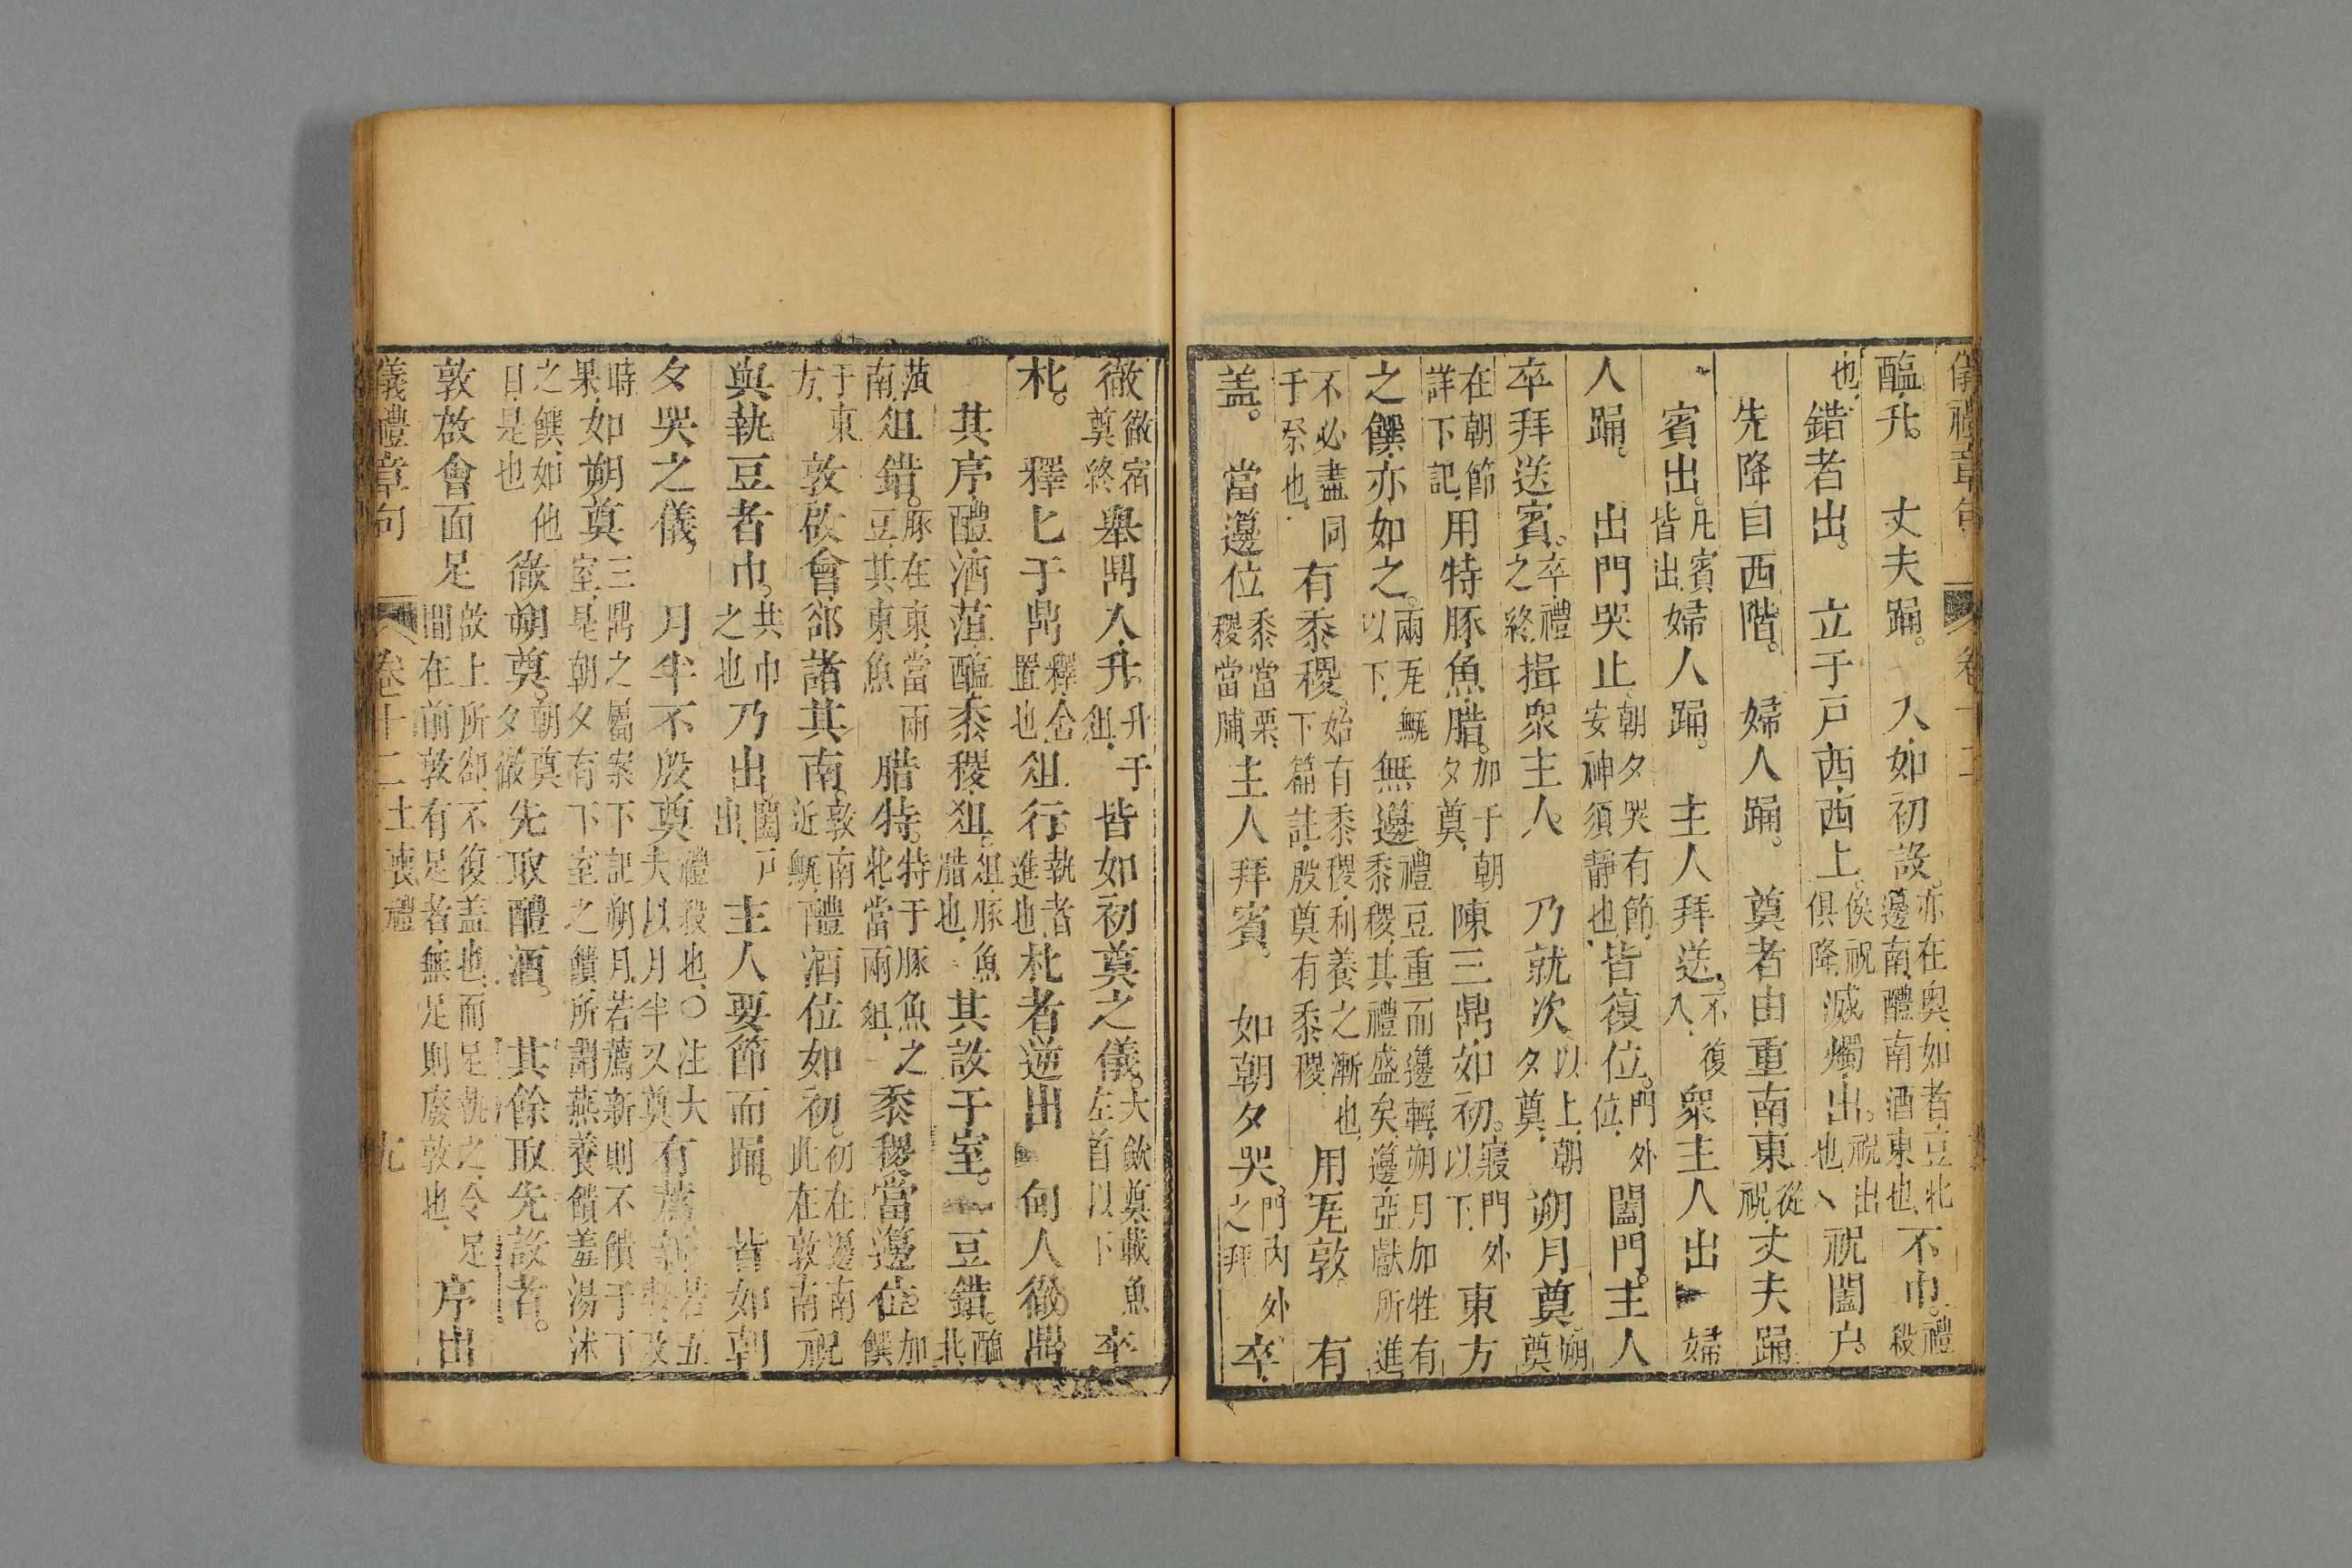 儀禮章句 卷十二
醢升。 丈夫踊。 入如初設。亦在奥如者豆北籩南醴南酒東也不巾。禮殺
也錯者出。 立于戸西西上。俟祝俱降滅燭出。祝出也祝闔户。
先降自西階。 婦人踊。 奠者由重南東從祝丈夫踊
賓出。凡賓皆出婦人踊。 主人拜送。不復入衆主人出 婦
人踊。 出門哭止朝夕哭有節安神須靜也皆復位。門外位闔門。主人
卒拜送賓。卒禮之終揖衆主人。 乃就次以上朝夕奠 朔月奠朔奠
在朝節詳下記用特豚魚腊。加于朝夕奠陳三鼎如初。寢門外以下東方
之饌亦如之。兩甒以下無籩禮豆重而籩輕朔月加牲有黍稷其禮盛矣籩亞獻所進
不必盡同于祭也有黍稷始有黍稷利養之漸也下篇註殷奠有黍稷用瓦敦。 有
盖。 當籩位黍當栗稷當脯主人拜賓。 如朝夕哭門内外之拜卒
徹徹宿奠終舉鼎入升升于俎皆如初奠之儀。大歛奠載魚左首以下卒
朼。 釋匕于鼎釋舍置也俎行。執者進也朼者逆出 甸人徹鼎
其序醴酒菹醢黍稷俎俎豚魚腊也其設于室。 豆錯。醢北
菹南俎錯。豚在東當兩豆其東魚腊特。特于豚魚之北當兩俎黍稷當籩位加饌
于東方敦啟會郤諸其南敦南近甒醴酒位如初。初在籩南此在敦南祝
與執豆者巾。共巾之也乃出闔戸出主人要節而踊。 皆如朝
夕哭之儀 月半不殷奠禮殺也○注大夫以月半又奠有薦新若五
時果如朔奠三鼎之屬案下記朔月若薦新則不饋于下室是朝夕有下室之饋所謂燕養饋羞湯沐
之饌如他日是也徹朔奠。朝奠夕徹先取醴酒。 其餘取先設者。
敦啟會面足啟上所郤不復盖也面足執之令足間在前敦有足者無足則廢敦也序出
儀禮章句 卷十二 士喪禮 九